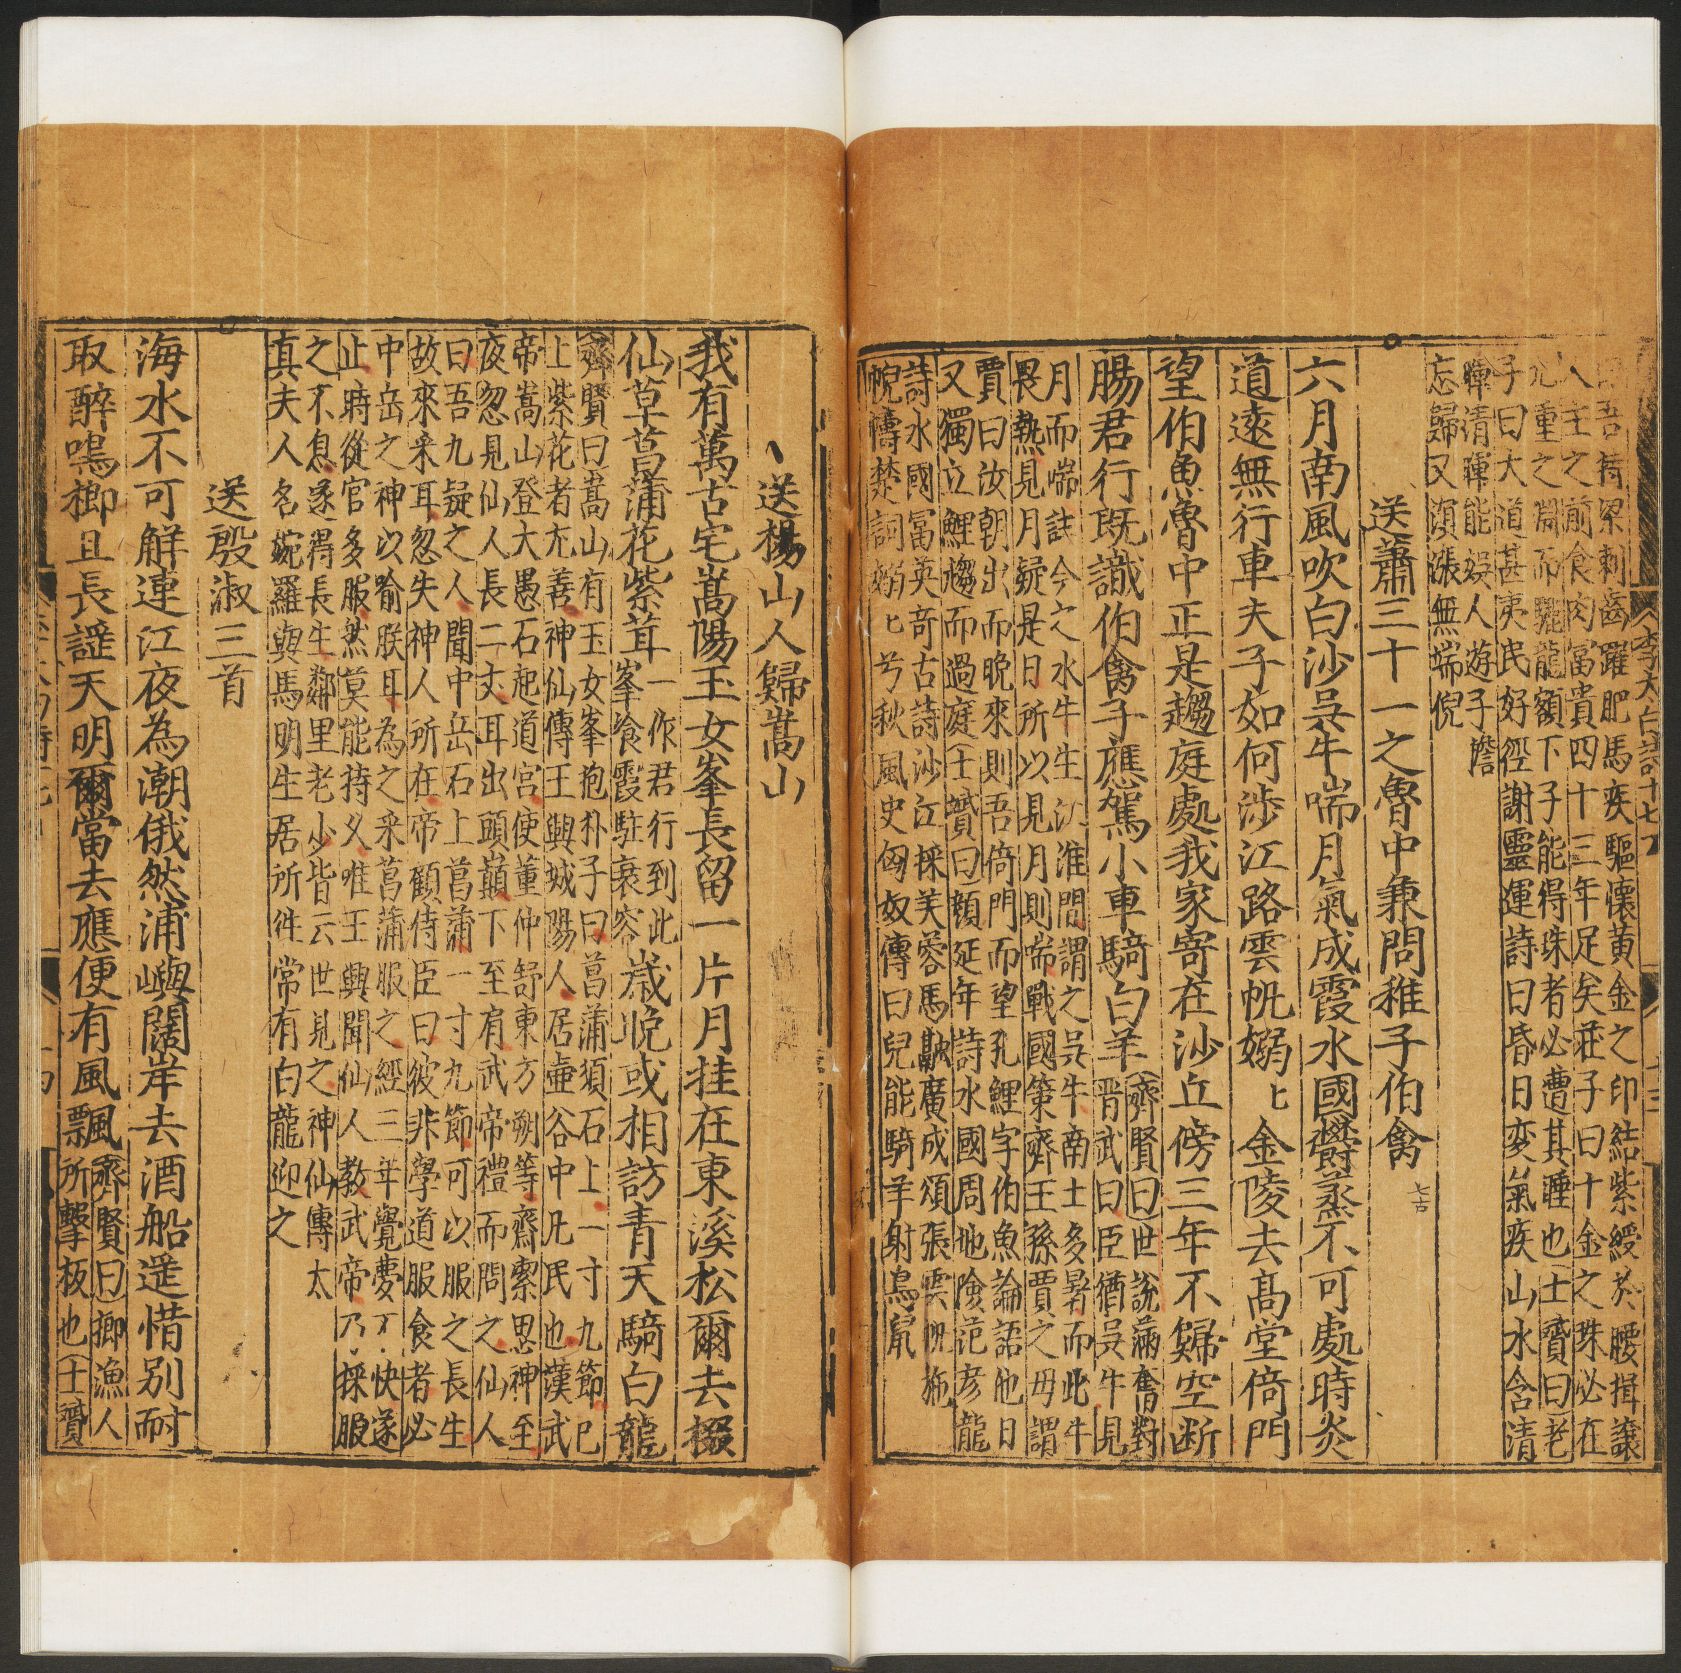 曰吾持梁刺齒躍肥馬疾驅懷黃金之印結紫綬於腰揖讓
人主之前食肉富貴四十三年足矣莊子曰十金之珠必在
九重之淵而驪龍額下子能得珠者必遭其睡也士贇曰老
子曰大道甚夷民好徑謝靈運詩曰昏旦変氣疾山水含清
暉清暉能娛人遊子憺
忘歸又須漲無端倪
送蕭三十一之魯中兼問稚子伯禽 七古
六月南風吹白沙吳牛喘月氣成霞水國欝蒸不可處時炎
道遠無行車夫子如何渉江路雲帆嫋〻金陵去髙堂倚門
望伯魚魯中正是趨庭處我家寄在沙丘傍三年不歸空断
腸君行既識伯禽子應駕小車騎白羊
齊賢曰世說滿奮對
晋武曰臣猶吳牛見
月而喘註今之水牛生江淮間謂之吳牛南土多暑而此牛
畏熱見月疑是日所以見月則喘戰國策齊王孫賈之母謂
賈曰汝朝出而晚來則吾倚門而望孔鯉字伯魚論語他日
又獨立鯉趨而過庭士贇曰顏延年詩水國周地險范彦龍
詩水國富英竒古詩渉江採芙蓉馬融廣成頌張雲帆施
蜺幬楚詞嫋〻兮秋風史匈奴傳曰兒能騎羊射鳥鼠
送楊山人歸嵩山
我有萬古宅嵩陽玉女峯長留一片月挂在東溪松爾去掇
仙草菖蒲花紫茸
一作君行到此
峯飡霞駐衰容
歳晚或相訪青天騎白龍
齊賢曰嵩山有玉女峯抱朴子曰菖蒲須石上一寸九節已
上紫花者尤善神仙傳王興城陽人居壷谷中凡民也漢武
帝嵩山登大愚石起道宮使董仲舒東方朔等齋潔思神至
夜忽見仙人長二丈耳出頭巔下至肩武帝禮而問之仙人
曰吾九疑之人聞中岳石上菖蒲一寸九節可以服之長生
故來采耳忽失神人所在帝顧侍臣曰彼非學道服食者必
中岳之神以喻朕耳為之采菖蒲服之經三年覺夢不快遂
止時從官多服然莫能持乆唯王興聞仙人教武帝乃採服
之不息遂得長生鄰里老少皆云世見之神仙傳太
真夫人名婉羅與馬明生居所徃常有白龍迎之
送殷淑三首
海水不可解連江夜為潮俄然浦嶼闊岸去酒船遥惜别耐
取醉鳴榔且長謡天明爾當去應便有風飄
齊賢曰榔漁人
所擊板也士贇